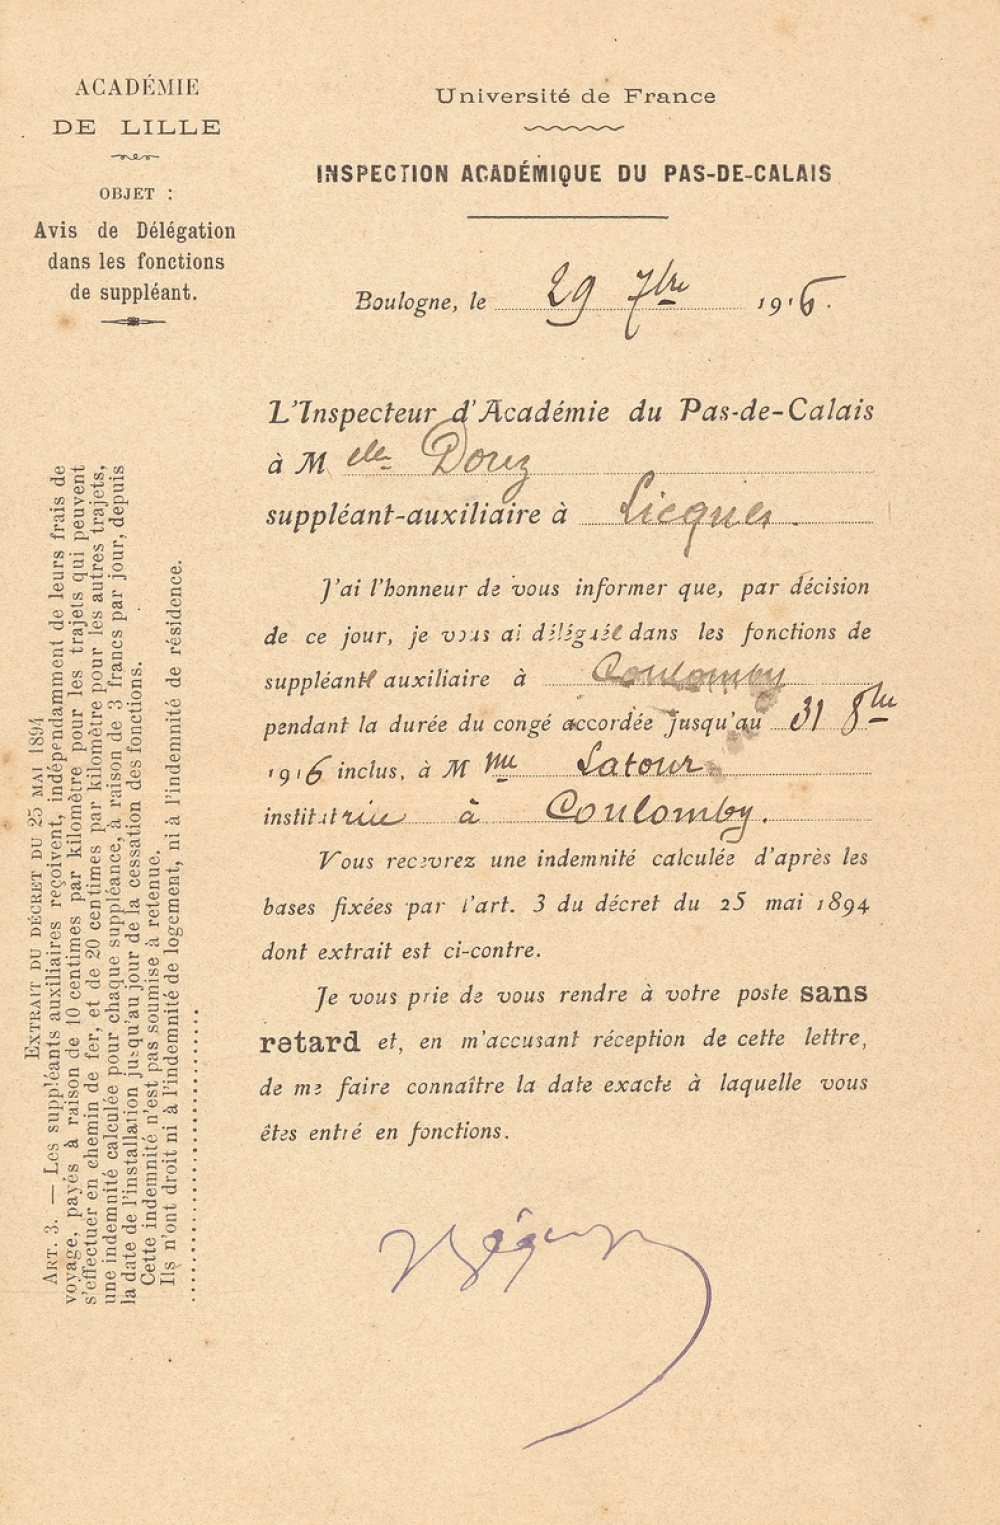 ACADÉMIE
DE LILLE
OBJET :
Avis de Délégation
dans les fonctions
de suppléant.
Université de France
INSPECTION ACADÉMIQUE DU PAS-DE-CALAIS
Boulogne, le 29 7bre 1916.
L'Inspecteur d'Académie du Pas-de-Calais
à Melle Douez
suppléant-auxiliaire à Licques.
J'ai l'honneur de vous informer que, par décision
de ce jour, je vous ai délégué dans les fonctions de
suppléante auxiliaire à Coulomby
pendant la durée du congé accordée jusqu'au 31 8bre
1916 inclus, à Mme Latour
institutrice à Coulomby.
Vous recevrez une indemnité calculée d'après les
bases fixées par l'art. 3 du décret du 25 mai 1894
dont extrait est ci-contre.
Je vous prie de vous rendre à votre poste sans
retard et, en m'accusant réception de cette lettre,
de me faire connaître la date exacte à laquelle vous
êtes entré en fonctions.
EXTRAIT DU DÉCRET DU 25 MAI 1894
ART. 3. — Les suppléants auxiliaires reçoivent, indépendamment de leurs frais de
voyage, payés à raison de 10 centimes par kilomètre pour les trajets qui peuvent
s'effectuer en chemin de fer, et de 20 centimes par kilomètre pour les autres trajets,
une indemnité calculée pour chaque suppléance, à raison de 3 francs par jour, depuis
la date de l'installation jusqu'au jour de la cessation des fonctions.
Cette indemnité n'est pas soumise à retenue.
Ils n'ont droit ni à l'indemnité de logement, ni à l'indemnité de résidence.